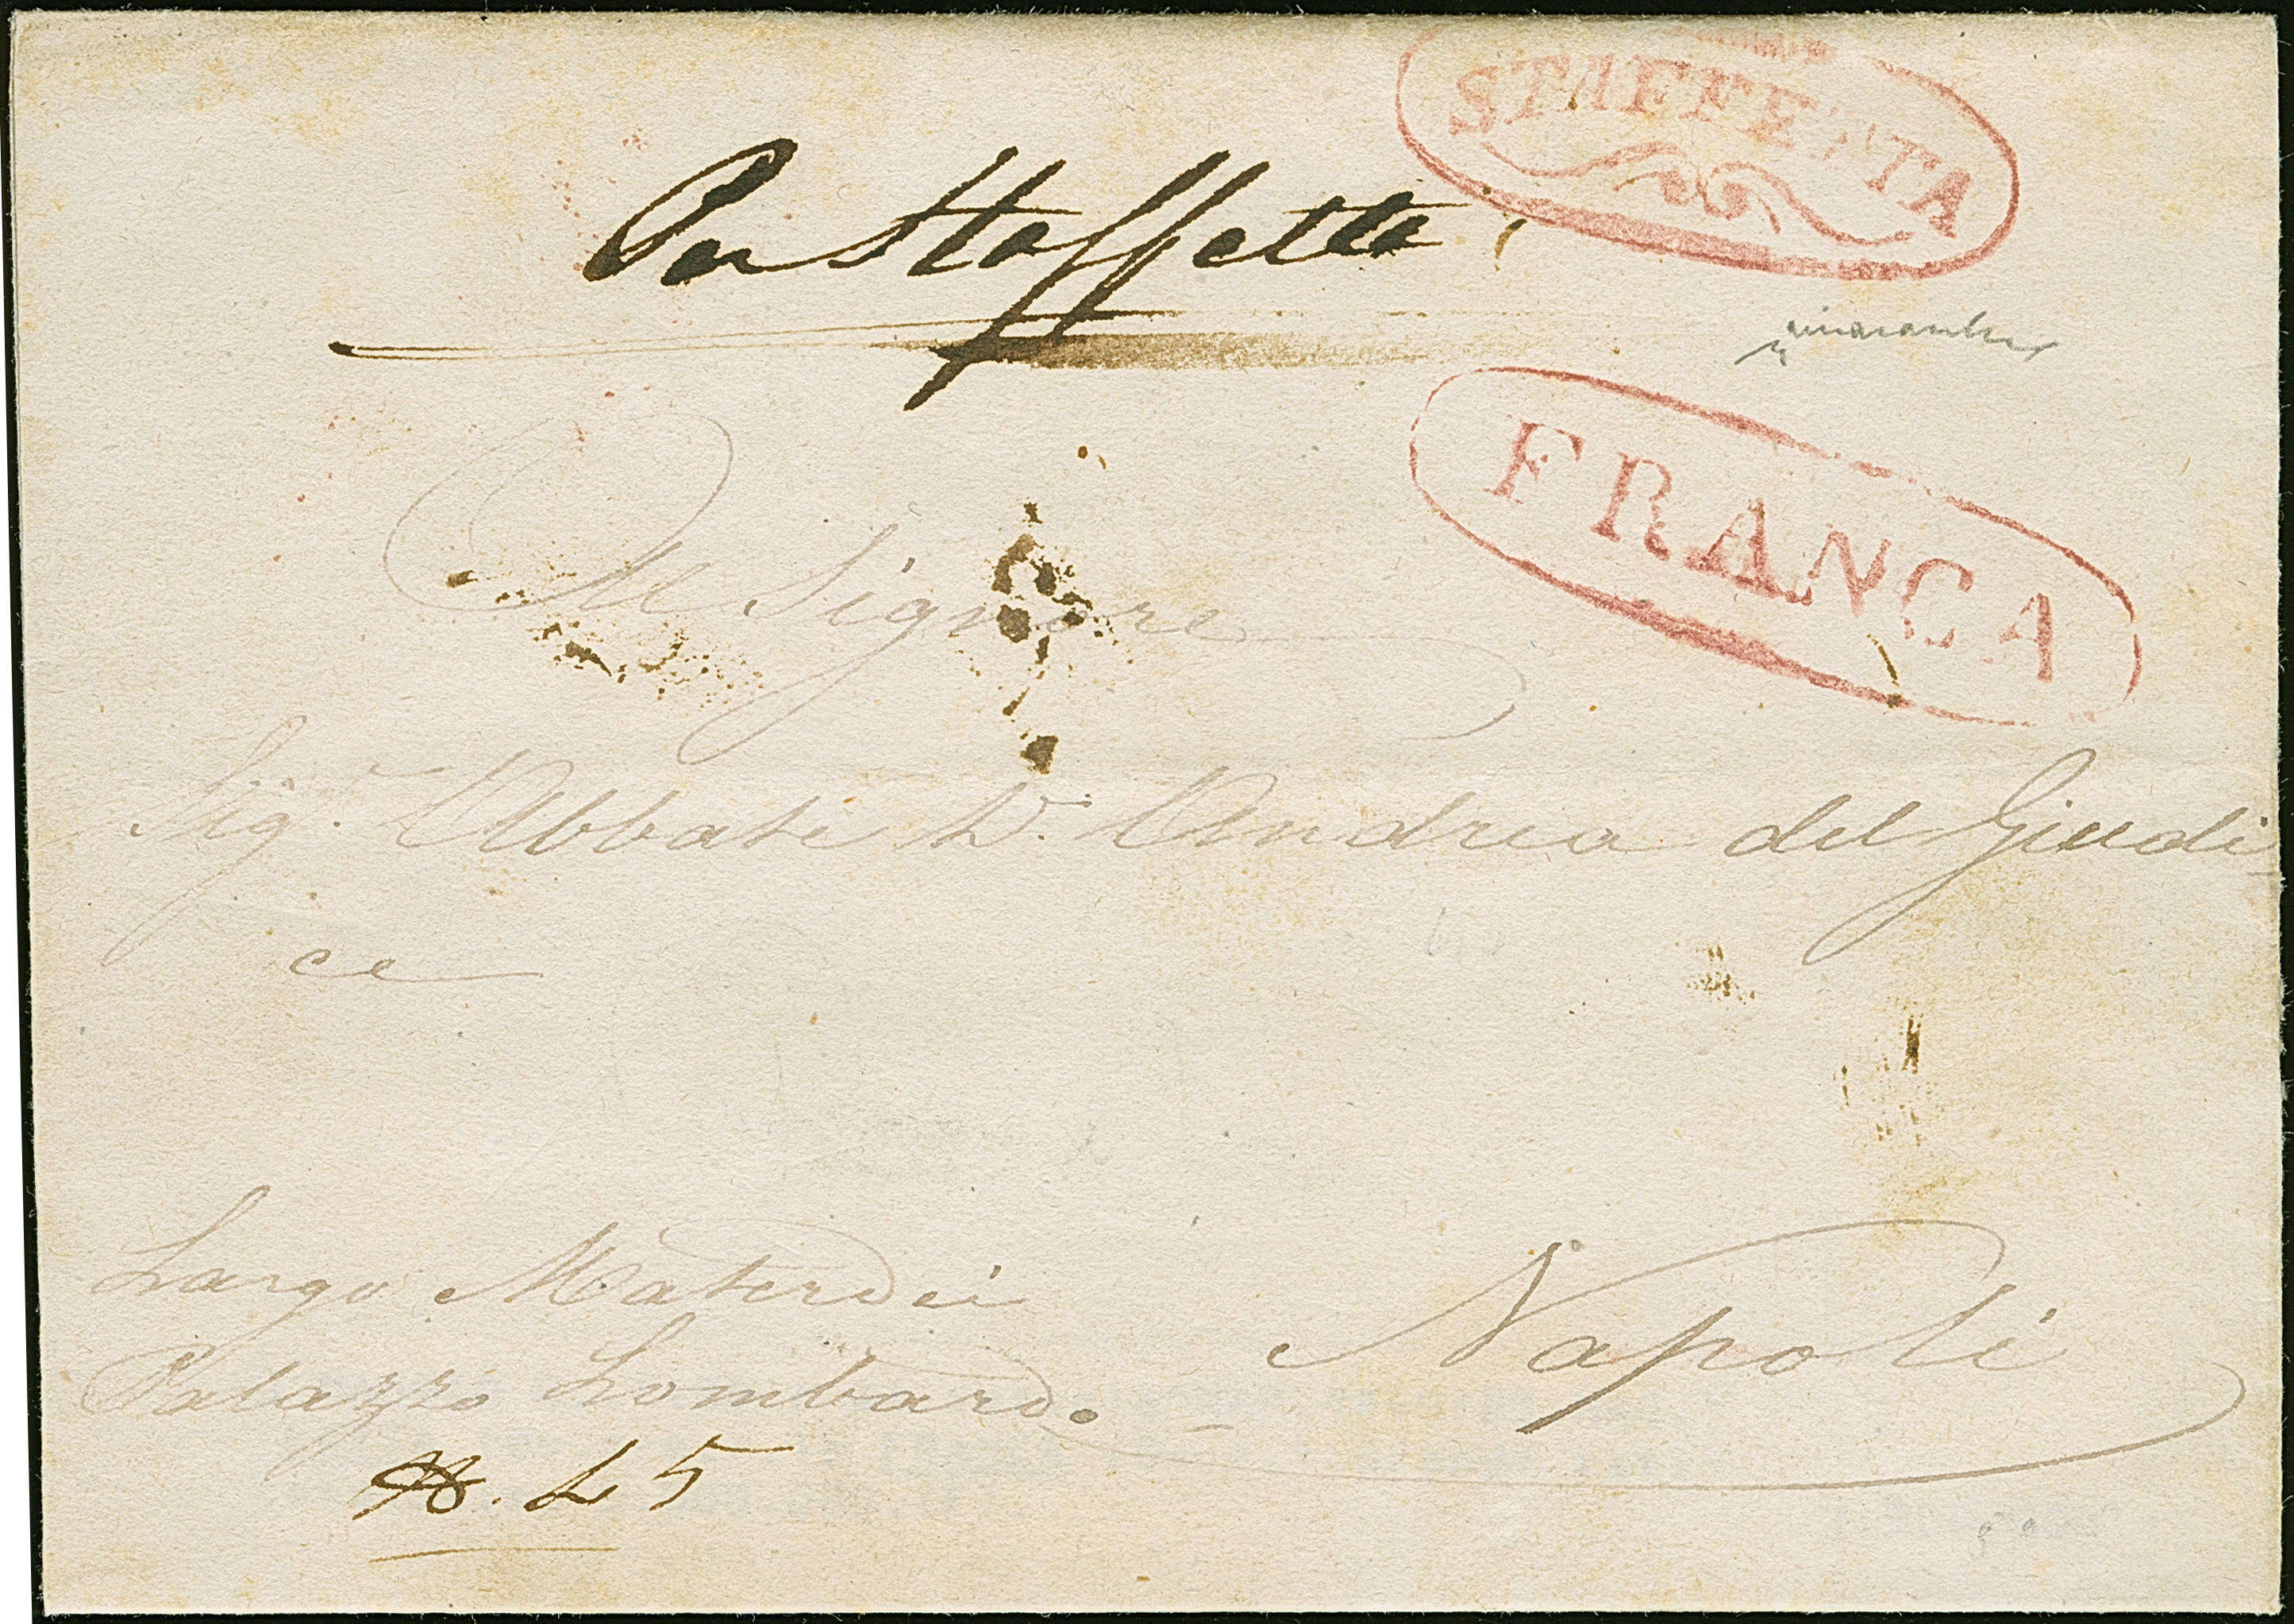 STAFFETTA
Per Staffetta
FRANCA
Al Signore
Sigr. Abbate D. Andrea del Giudi
ce
Largo Materdei
Palazzo Lombardo
Napoli